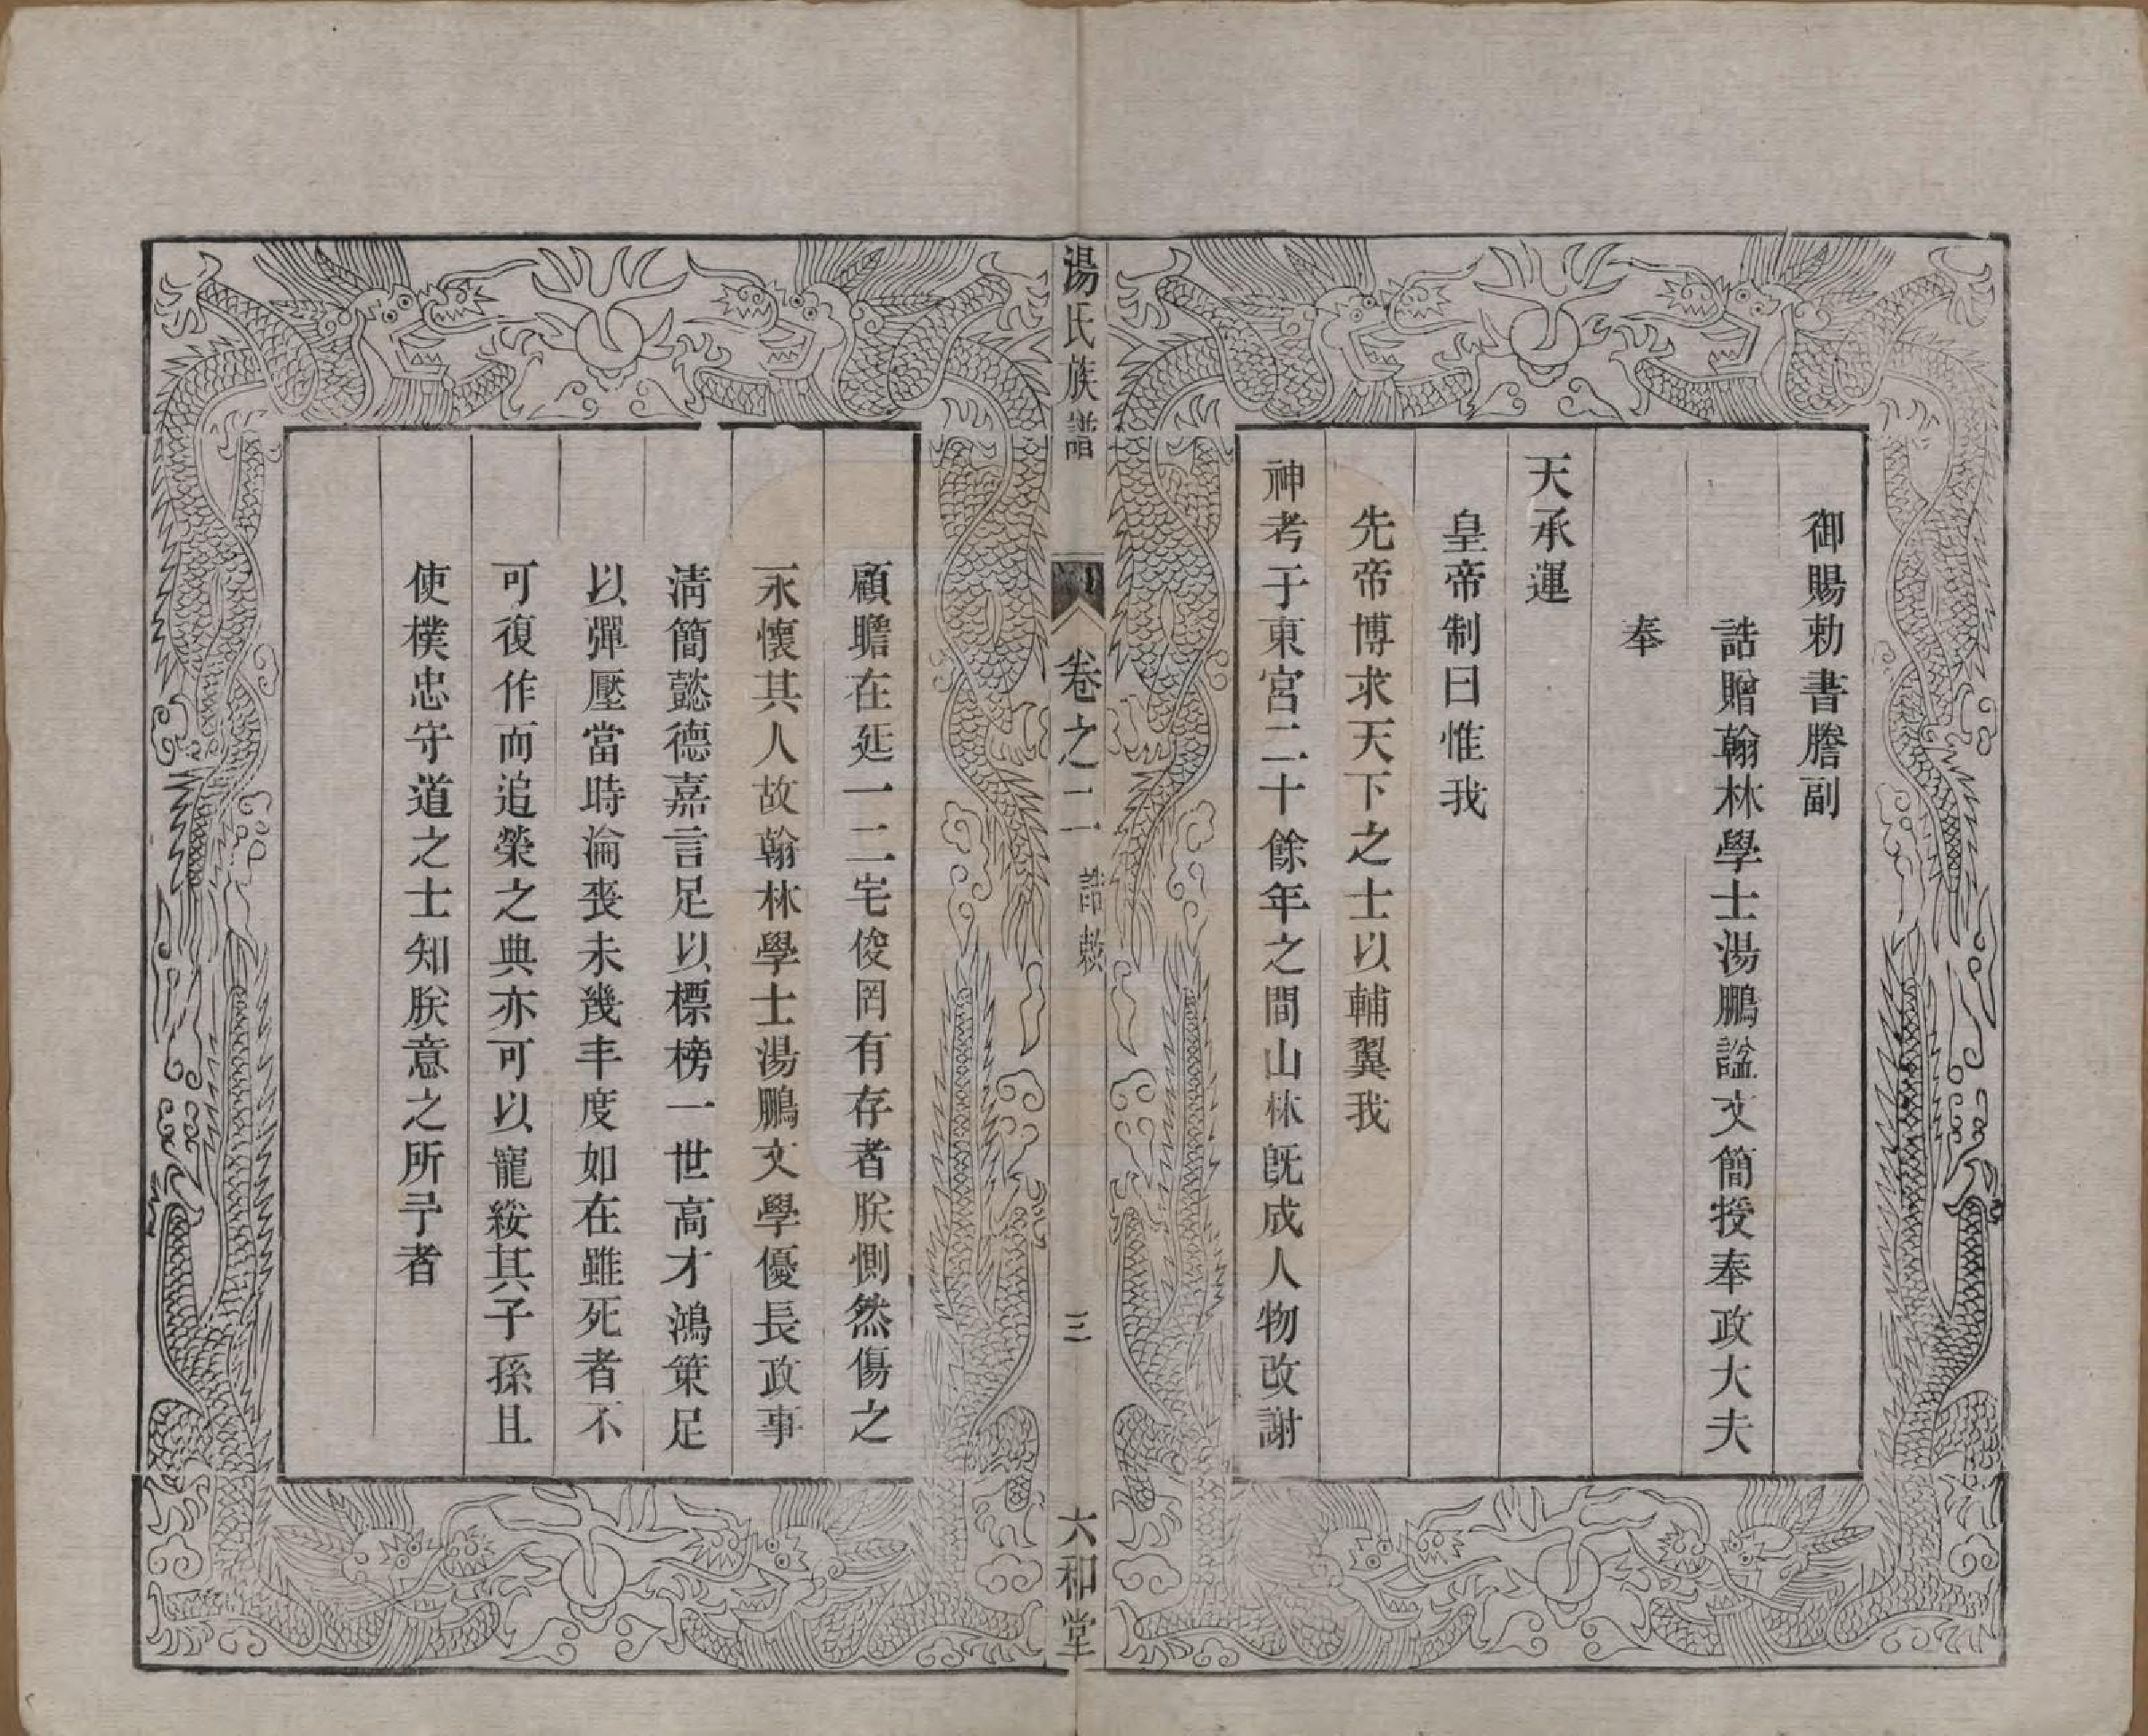 御賜勅書謄副
誥贈翰林學士湯鵬諡文簡授奉政大夫
奉
天承運
皇帝制曰惟我
先帝博求天下之士以輔翼我
神考于東宮二十餘年之間山林旣成人物改謝
湯氏族譜
卷之二
誥敕
三
六和堂
顧瞻在廷一二宅俊罔有存者朕惻然傷之
永懷其人故翰林學士湯鵬文學優長政事
淸簡懿德嘉言足以標榜一世高才鴻策足
以彈壓當時淪喪未幾丰度如在雖死者不
可復作而追榮之典亦可以寵綏其子孫且
使樸忠守道之士知朕意之所予者